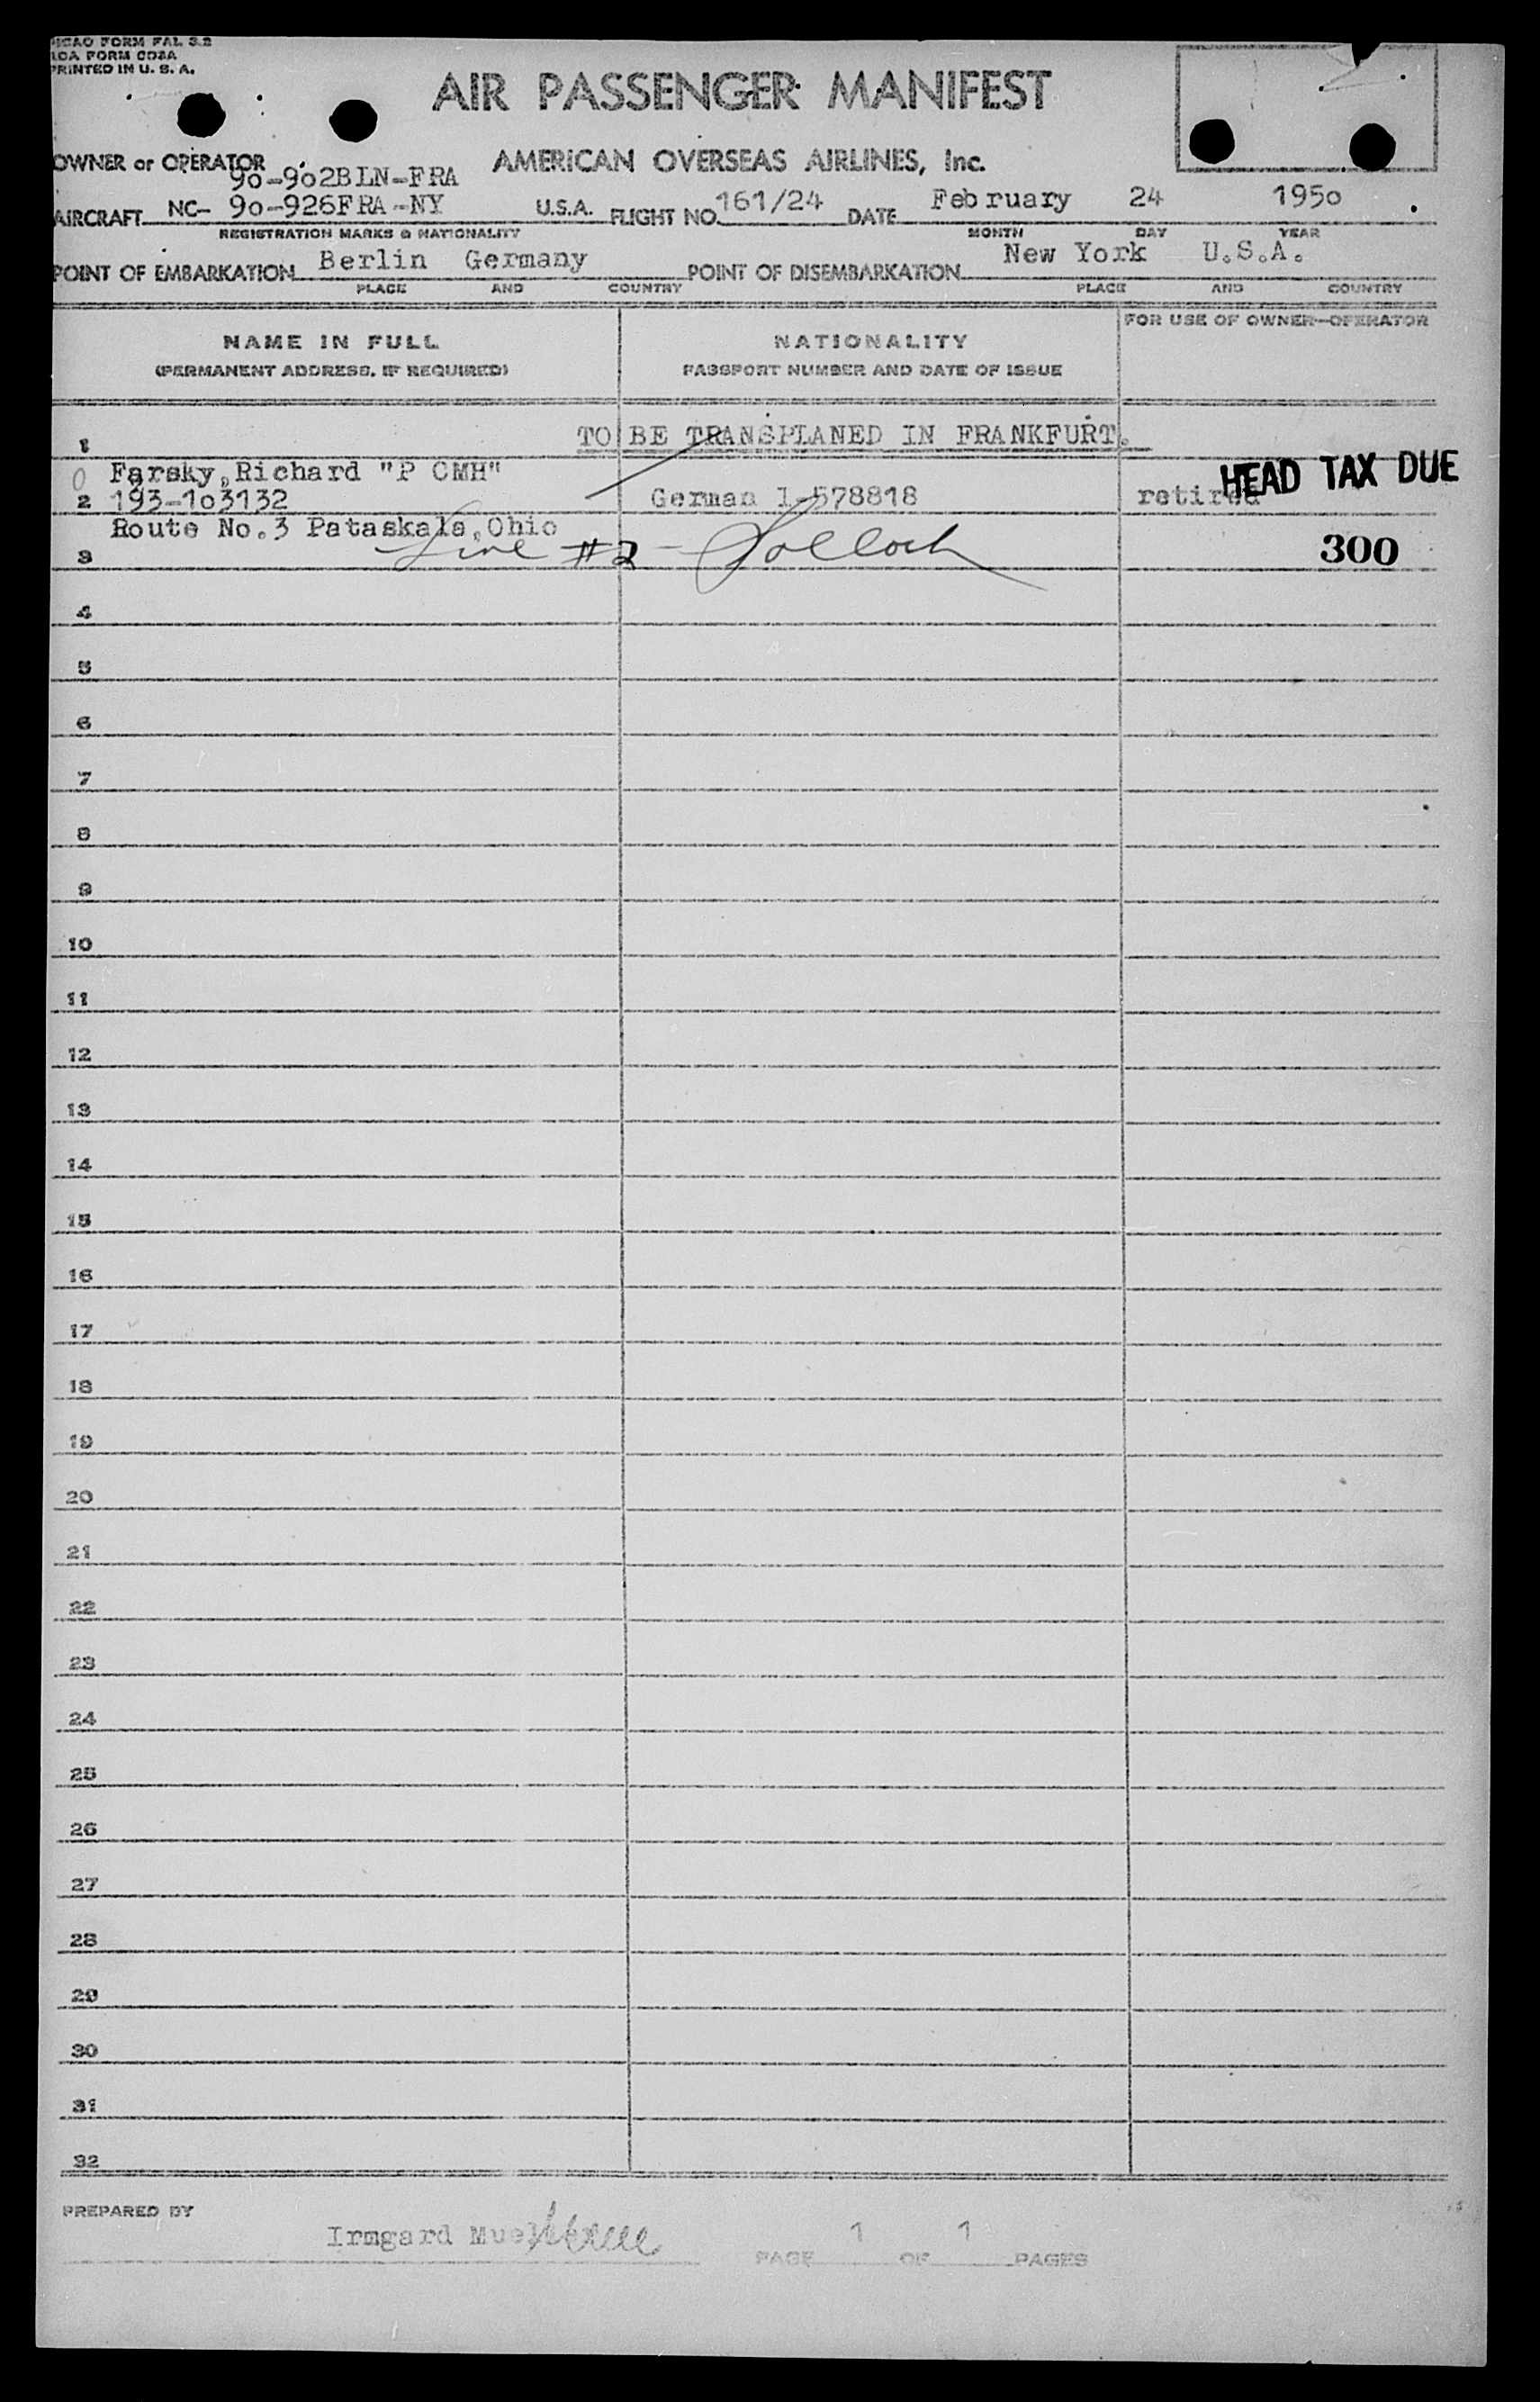 ICAO FORM FAL 3.2
AOA FORM C02A
PRINTED IN U. S. A.
AIR PASSENGER MANIFEST
OWNER or OPERATOR AMERICAN OVERSEAS AIRLINES, Inc.
90-902BLN-FRA
AIRCRAFT NC- 90-926FRA-NY U.S.A. FLIGHT NO. 161/24 DATE February 24 1950
REGISTRATION MARKS & NATIONALITY MONTH DAY YEAR
POINT OF EMBARKATION Berlin Germany POINT OF DISEMBARKATION New York U.S.A.
PLACE AND COUNTRY PLACE AND COUNTRY
NAME IN FULL NATIONALITY FOR USE OF OWNER—OPERATOR
(PERMANENT ADDRESS, IF REQUIRED) PASSPORT NUMBER AND DATE OF ISSUE
1 TO BE TRANSPLANED IN FRANKFURT.
0 Farsky,Richard "P CMH" HEAD TAX DUE
2 193-103132 German 1-578818 retired
Route No.3 Pataskala,Ohio
3 Line #2 - Pollock 300
4
5
6
7
8
9
10
11
12
13
14
15
16
17
18
19
20
21
22
23
24
25
26
27
28
29
30
31
32
PREPARED BY
Irmgard
PAGE 1 OF 1 PAGES